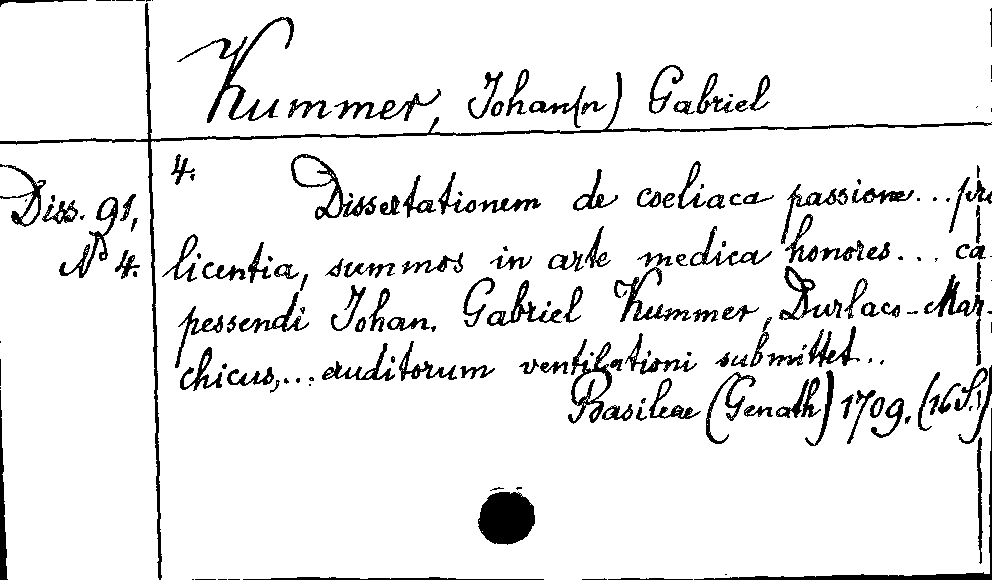 Kummer, Johan(n) Gabriel
4.
Diss. 91,
No 4.
Dissertationem de coeliaca passione... pro
licentia, summos in arte medica honores... ca-
pessendi Johan. Gabriel Kummer, Durlaco-Mar-
chicus,... eruditorum ventilationi submittet...
Basileae (Genath) 1709. (16 S.)